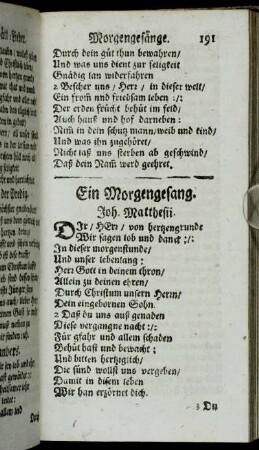 Morgengesänge. 191
Durch dein güt thun bewahren/
Und was uns dient zur seligkeit
Gnädig lan widerfahren
2 Bescher uns/ Herr/ in dieser welt/
Ein from̃ und friedsam leben :/:
Der erden frücht behüt im feld/
Auch hauß und hof darneben:
Nim̃ in dein schutz mann/ weib und kind/
Und was ihn zugehöret/
Nicht laß uns sterben ab geschwind/
Daß dein Nam̃ werd geehret.
Ein Morgengesang.
Joh. Matthesii.
DIr/ HErr/ von hertzengrunde
Wir sagen lob und danck :/:
In dieser morgenstunde/
Und unser lebenlang:
Herr Gott in deinem thron/
Allein zu deinen ehren/
Durch Christum unsern Herrn/
Dein eingebornen Sohn.
2 Daß du uns auß genaden
Diese vergangne nacht :/:
Für gfahr und allem schaden
Behüt hast und bewacht:
Und bitten hertziglich/
Die sünd wollst uns vergeben/
Damit in diesem leben
Wir han erzörnet dich.
3 Du